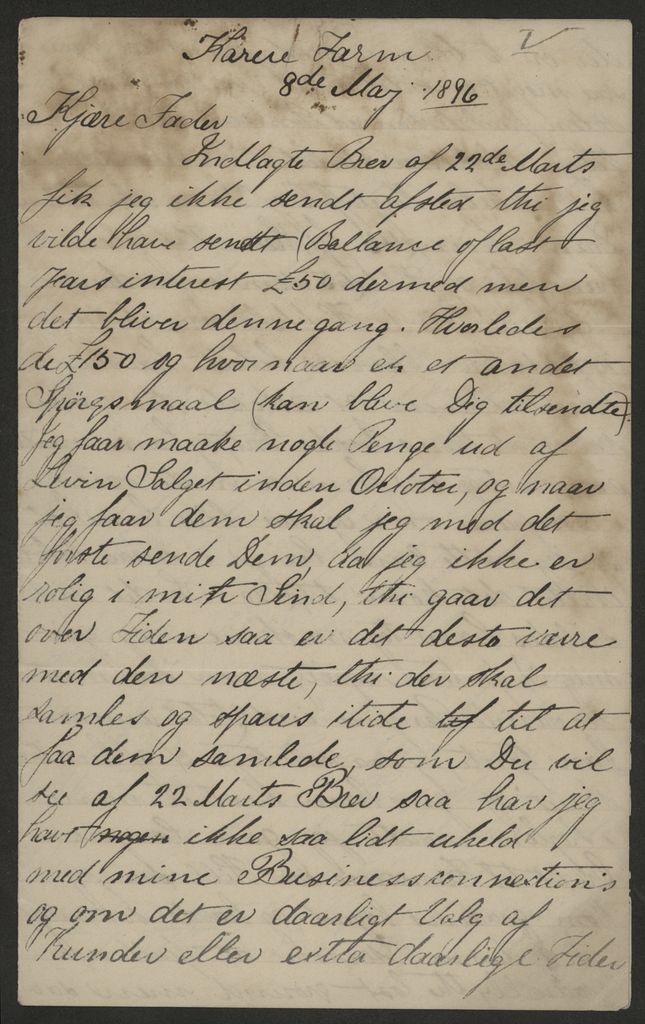 Karere Farm
8de Maj 1896
Kjære Fader
Indlagte Brev af 22de Marts
fik jeg ikke sendt afsted thi jeg
vilde have sendt (Ballance of last
years interest £50 dermed men
det bliver denne gang. Hvorledes
de £150 og hvornaar er et andet
Spørgsmaal (kan blive Dig tilsendte)
Jeg faar maake nogle Penge ud af
Levin Salget inden October, og naar
jeg faar dem skal jeg med det
første sende Dem, da jeg ikke er
rolig i mit Sind, thi gaar det
over Tiden saa er det desto værre
med den næste, thi der skal
samles og spares itide til at
faa dem samlede, som Du vil
see af 22 Marts Brev saa har jeg
havt nogen ikke saa lidt uheld
med mine Businessconnextion's
og om det er daarligt Valg af
Kunder eller extra daarlige Tider